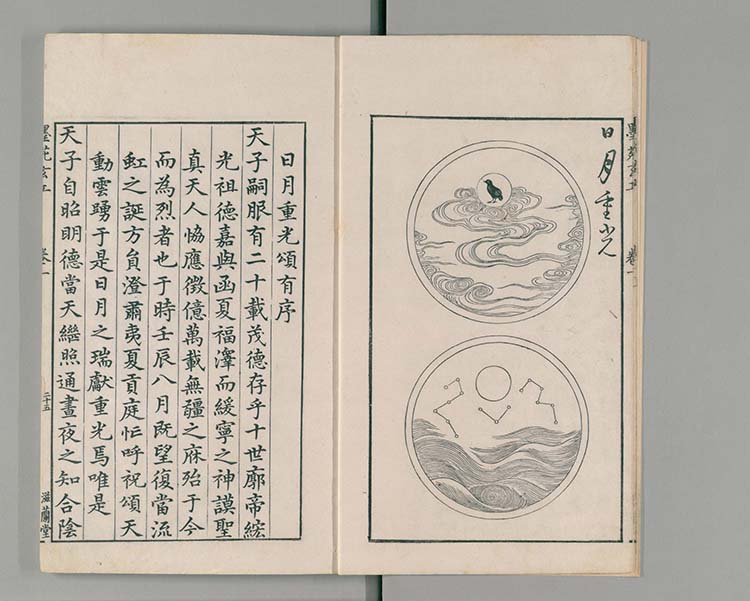 墨苑玄工 卷一
日月重光
日月重光頌有序
天子嗣服有二十載茂德存乎十世廓帝綋
光祖德嘉與函夏福澤而綏寧之神謨聖
真天人恊應徵億萬載無疆之庥殆于今
而為烈者也于時壬辰八月旣望復當流
虹之誕方貟澄肅夷夏貢庭忭呼祝頌天
動雲踴于是日月之瑞獻重光焉唯是
天子自昭明德當天繼照通晝夜之知合陰
墨苑玄工 卷一 二十五 滋蘭堂